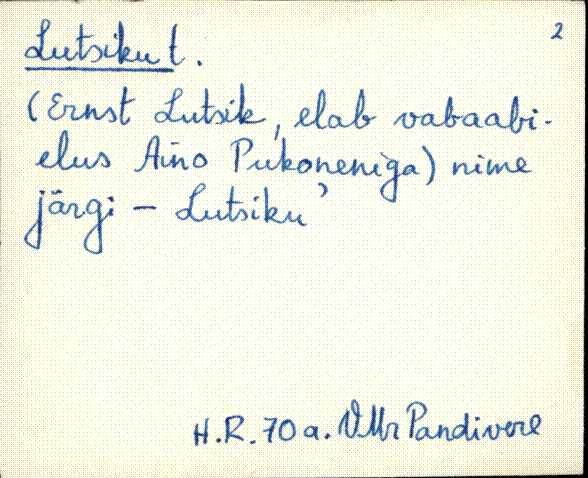 2
Lutsiku t.
(Ernst Lutsik, elab vabaabi-
elus Aino Pukoneniga) nime
järgi - Lutsiku'
H.R. 70 a. VMr Pandivere